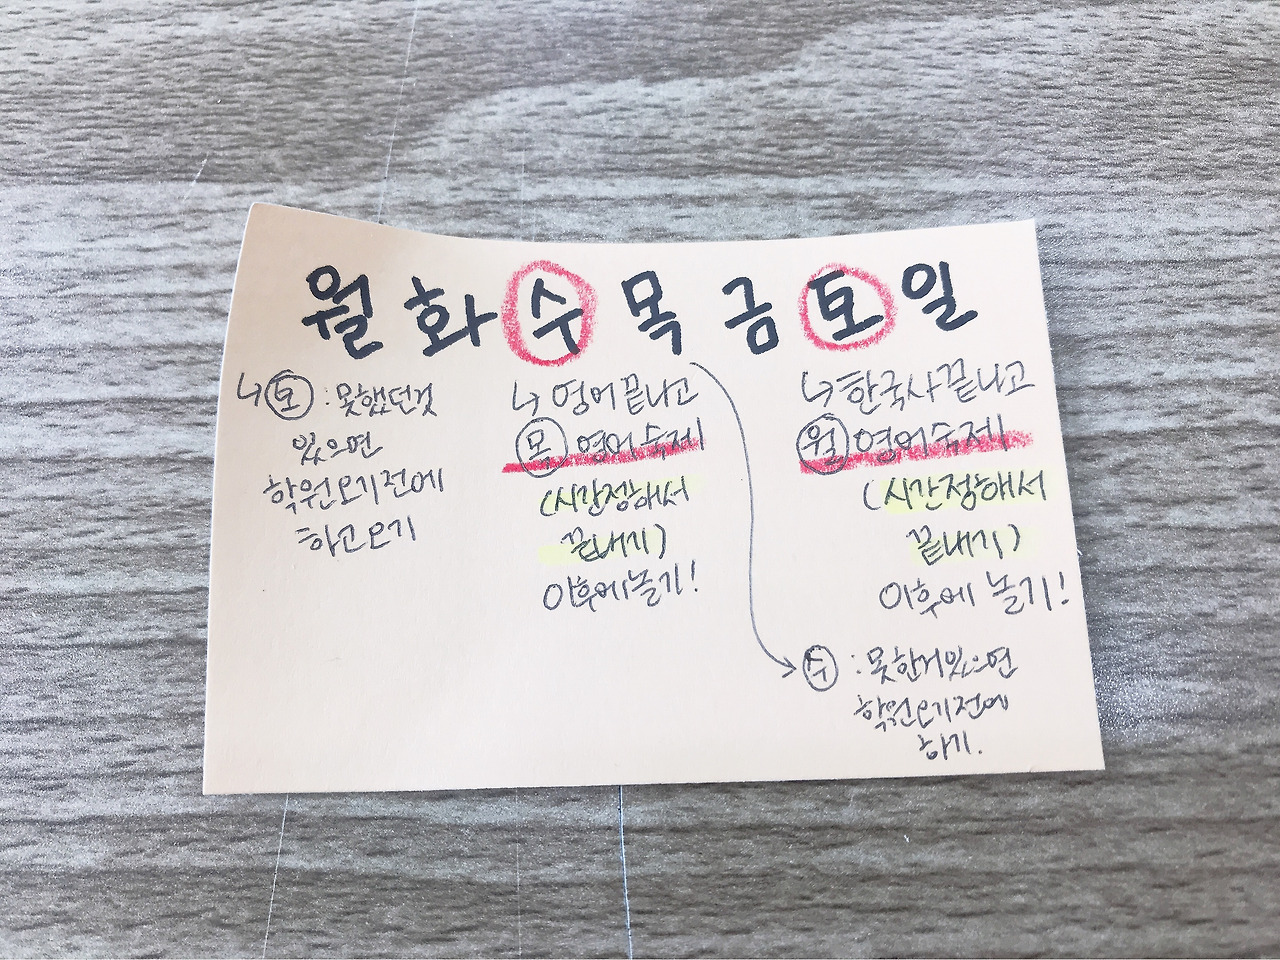 월 화 수 목 금 토 일
↳ 토 : 못했던것
있으면
학원오기전에
하고오기
↳ 영어끝나고
목 영어숙제
(시간정해서
끝내기)
이후에놀기!
↳ 한국사끝나고
월 영어숙제
(시간정해서
끝내기)
이후에 놀기!
수 : 못한거있으면
학원오기전에
하기.